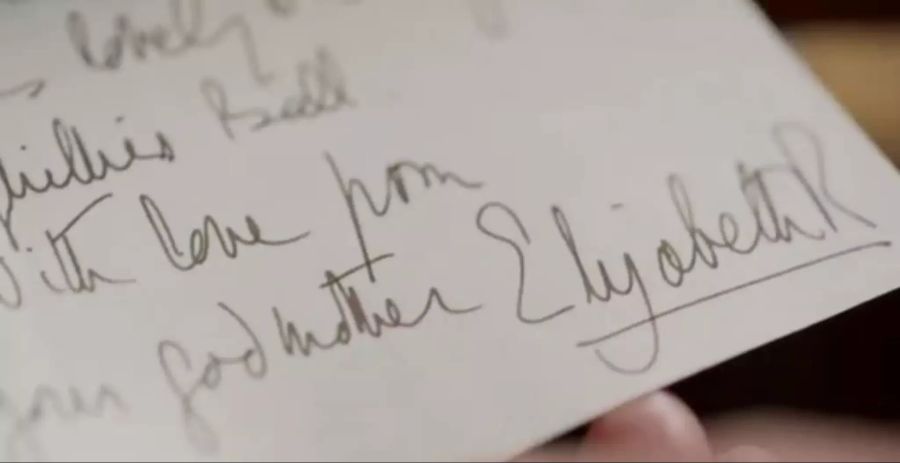 lovely
Ghillies Ball
With love from
your godmother Elizabeth R